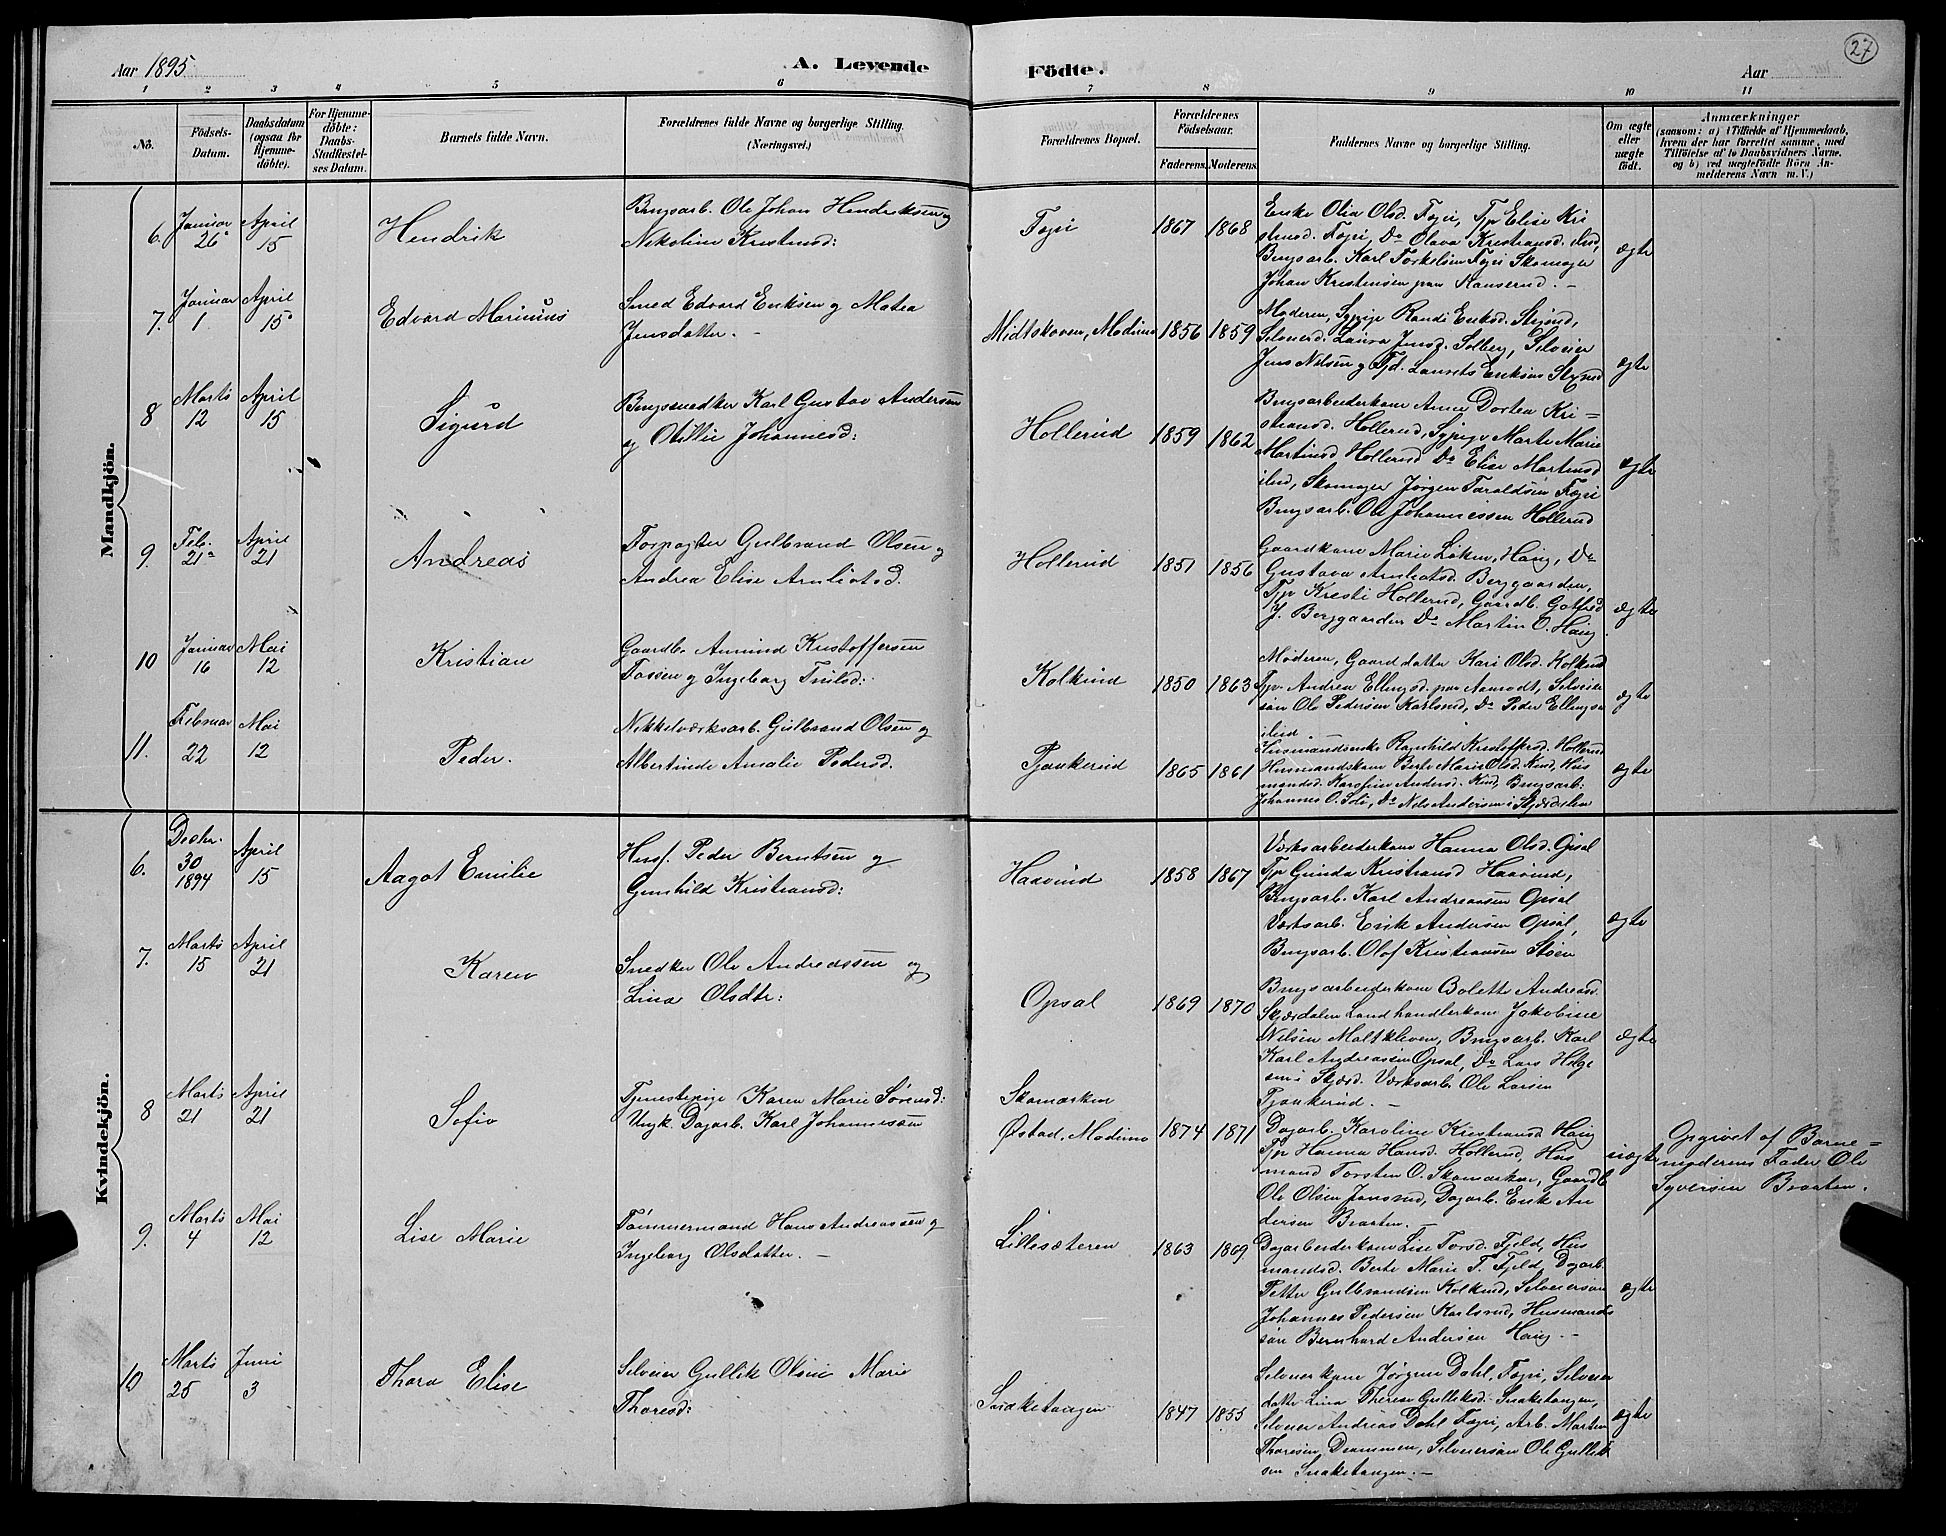 27
Aar 1895
A. Levende
Födte.
Aar
1 2 3 4 5 6 7 8 9 10 11
No.
Födsels-
Datum.
Daabsdatum
(ogsaa for
Hjemme-
döbte).
For Hjemme-
döbte:
Daabs-
Stadfæstel-
ses Datum.
Barnets fulde Navn.
Forældrenes fulde Navne og borgerlige Stilling.
(Næringsvei.)
Forældrenes Bopæl.
Forældrenes
Födselsaar.
Faderens.
Moderens.
Faddernes Navne og borgerlige Stilling.
Om ægte
eller
uægte
födt.
Anmærkninger
(saasom: a) i Tilfælde af Hjemmedaab,
hvem der har forrettet samme, med
Tilföielse af to Daabsvidners Navne,
og b) ved uægtefödte Börn An-
melderens Navn m. V.)
Mandkjön.
6. Januar 26 April 15
Hendrik
Brugsarb. Ole Johan Hendriksen og
Nikoline Kristensd:
1867 1868
Enke Olia Olsd. Tp Elise Kri
Do Olava Kristiansd. ibid,
Brugsarb. Karl Torkelsen Skomager
Johan Kristiansen
ægte
7. Januar 1 April 15
Edvard Marinius
Smed Edvard Eriksen og Matea
Jensdatter. -
Midtskoven, Modum 1856 1859
Moderen, Sypige Randi Eriksd.
Laura Jensd. Solberg, Selveier
Jens Nilsen og Laurits Eriksen
ægte
8 Marts 12 April 15
Sigurd
Brugssnedker Karl Gustav Andersen
og Otillie Johannesd:
Hollerud 1859 1862
Brugsarbeiderkone Anne Dortea Kri=
stiansd. Hollerud, Sypige Marte Marie
Martinsd Hollerud Do Elise Martinsd
ibid, Skomager Jørgen Taraldsen
Brugsarb. Ole Johannessen Hollerud
ægte
9. Feb. 21 April 21
Andreas
Forpagter Gulbrand Olsen og
Andrea Elise Arnliotsd.
Hollerud 1851 1856
Gaardkone Marie Løken, Haug, Do
Gustava Arnliotsd. Berggaarden,
Tp Kristi Hollerud, Gaardb. Gotfred
J. Berggaarden Do Martin O. Haug
ægte
10 Januar 16 Mai 12
Kristian
Gaardb. Amund Kristoffersen
Fossen og Ingeborg
Kolkind 1850 1863
Moderen, Gaarddatter Kari Olsd. Kolkind
Tp. Andrea Ellingsd. paa Selveier
søn Ole Pedersen Karlsrud, Do Peder Ellingsen
ibid. -
ægte
11. Februar 22 Mai 12
Peder.
Nikkelværksarb. Gulbrand Olsen og
Albertinde Amalie Pedersd.
Tjonkerud 1865 1861
Husmandsenke Ragnhild Kristoffersd. Hollerud
Husmandskone Berte Marie Olsd. Hus
mandsd. Karoline Andersd. Brugsarb:
Johannes O. Do Nils Andersen i Skjærdalen
ægte
Kvindekjön.
6. Decbr. 30 1894 April 15
Aagot Emilie
Husf. Peder Berntsen og
Gunhild Kristiansd:
Haavind 1858 1867
Værksarbeiderkone Hanna Olsd. Opsal
Tp Gunda Kristiansd Haavind,
Brugsarb. Karl Andreassen Opsal
Værksarb. Erik Andersen Opsal,
Brugsarb. Olof Kristiansen Støen
ægte
7. Marts 15 April 21
Karen
Snedker Ole Andreassen og
Lina Olsdtr:
Opsal 1869 1870
Brugsarbeiderkone Bolette Andreasd.
Skjærdalen Landhandlerkone Jakobine
Nilsen Moltkleven, Brugsarb. Karl
Karl Andreassen Opsal, Do Lars Helge
sen i Skjærd. Værksarb. Ole Larsen
Tjonkerud. -
ægte
8 Marts 21 April 21
Sofie
Tjenestepige Karen Marie Sørensd:
Ungk. Dagarb. Karl Johannessen
Skomarken
Østad, Modum 1874 1871
Dagarb. Karoline Kristiansd Haug
Tp Hanna Hansd. Hollerud, Hus
mand Torsten O. Skomarken, Gaardb
Ole Olsen Jonsrud, Dagarb. Erik An
dersen Braaten. -
uægte
Opgivet af Barne=
moderens Fader Ole
Syversen Braaten.
9. Marts 4 Mai 12
Lise Marie
Tømmermand Hans Andreassen og
Ingeborg Olsdatter. -
Lillesæteren 1863 1869
Dagarbeiderkone Lise Torsd. Fjeld, Hus
mandsd. Berte Marie T. Fjeld, Dagarb.
Petter Gulbrandsen Kolkind, Selveiersøn
Johannes Pedersen Karlsrud, Husmands
søn Bernhard Andersen Haug. -
ægte
10 Marts 25 Juni 3
Thora Elise
Selveier Gullik Olsen Marie
Thoresd:
Snaketangen 1847 1855
Selveierkone Jørgine Dahl, Selveier
datter Lina Therese Gulliksd. Snaketangen,
Selveier Andreas Dahl Arb. Morten
Thoresen Drammen, Selveiersøn Ole Gullik
sen Snaketangen. -
ægte